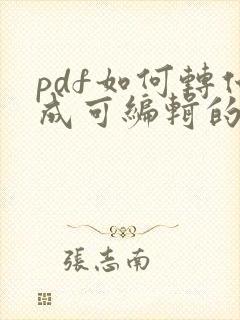 pdf如何轉
成可編輯的
張志南